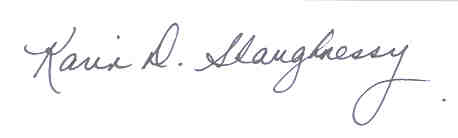 Karin D. Slaughnessy